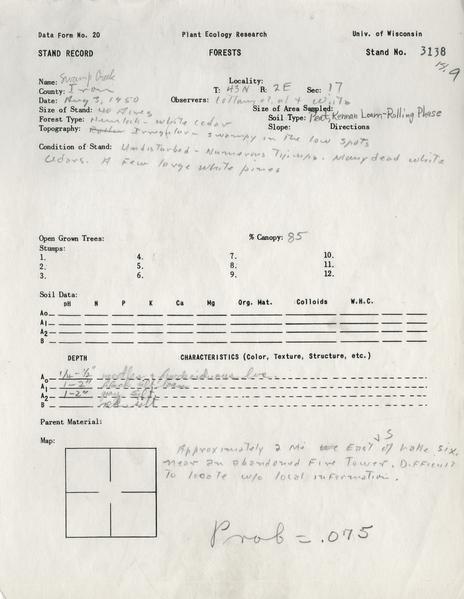 Data Form No. 20 Plant Ecology Research Univ. of Wisconsin
STAND RECORD FORESTS Stand No. 3138
15/9
Name: Swamp Creek Locality:
County: Iron T: 43N R: 2E Sec: 17
Date: Aug 3, 1950 Observers: et al + White
Size of Stand: 40 Acres Size of Area Sampled:
Forest Type: Hemlock - white cedar Soil Type: Peat, Kennan Loam-Rolling Phase
Topography: Rather Irregular - swampy in the low spots Slope: Directions
Condition of Stand: Undisturbed - Numerous Tipups. Many dead white
cedars. A few large white pines
Open Grown Trees: % Canopy: 85
Stumps:
1. 4. 7. 10.
2. 5. 8. 11.
3. 6. 9. 12.
Soil Data:
pH N P K Ca Mg Org. Mat. Colloids W.H.C.
Ao
A1
A2
B
DEPTH CHARACTERISTICS (Color, Texture, Structure, etc.)
Ao 1/4 - 1/2"
A1 1-2" black
A2 1-2" gray silt
B red silt
Parent Material:
Map:
S
Approximately 2 Mi East of Lake Six,
near an abandoned Fire Tower. Difficult
to locate w/o local information.
Prob = .075